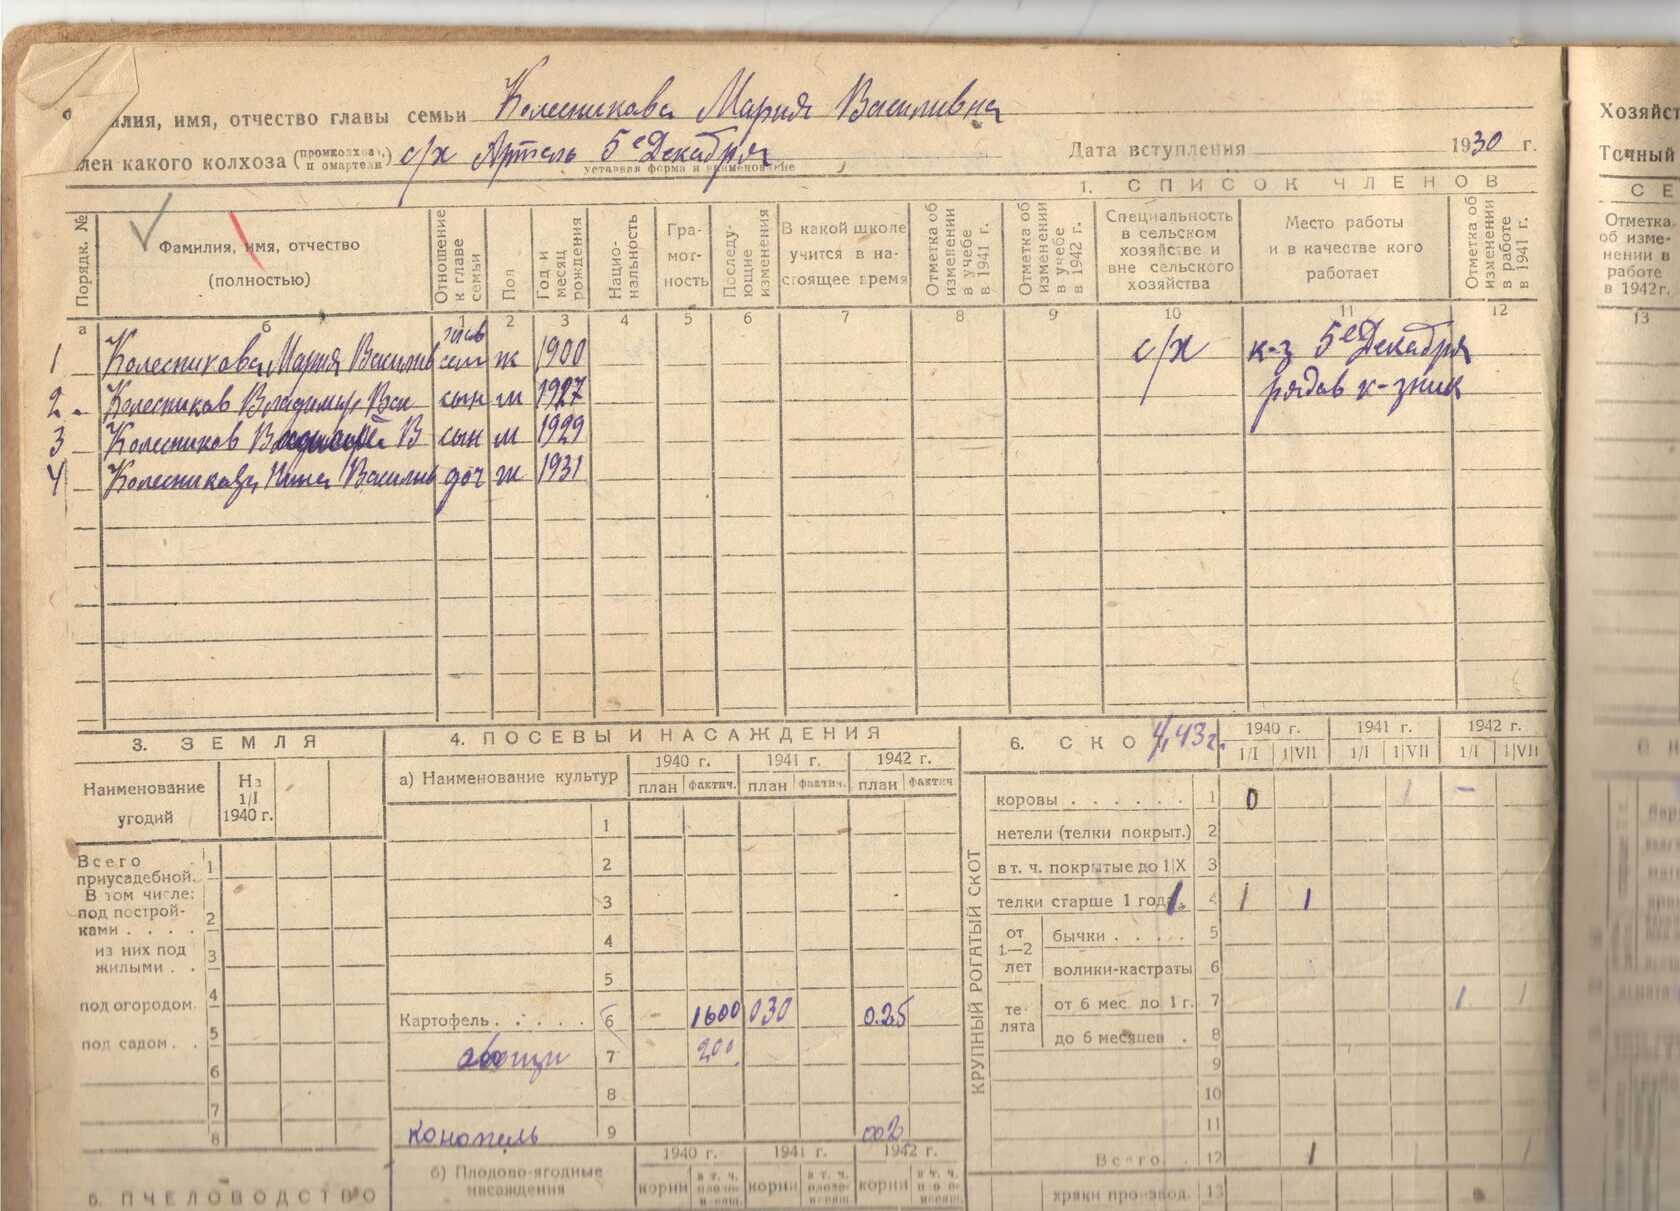 илия, имя, отчество главы семьи Колесникова Мария Василивна
лен какого колхоза (промколхоза, п омартели) с/х Артель 5е Декабря
уставная форма и наименование
Дата вступления 1930 г.
1. СПИСОК ЧЛЕНОВ
Порядк. №
Фамилия, имя, отчество (полностью)
Отношение к главе семьи
Пол
Год и месяц рождения
Нацио-нальность
Гра-мот-ность
Последу-ющие изменения
В какой школе учится в на-стоящее время
Отметка об изменении в учебе в 1941 г.
Отметка об изменении в учебе в 1942 г.
Специальность в сельском хозяйстве и вне сельского хозяйства
Место работы и в качестве кого работает
Отметка об изменении в работе в 1941 г.
а б 1 2 3 4 5 6 7 8 9 10 11 12
1 Колесникова Мария Василив ж 1900 с/х к-з 5е Декабря
рядов к-зник
2 Колесников Владимир Вас сын м 1927
3 Колесников В сын м 1929
4 Колесникова Нина Василив доч ж 1931
3. ЗЕМЛЯ
Наименование угодий
На 1/I 1940 г.
Всего приусадебной. 1
В том числе:
под построй-ками . . . . 2
из них под жилыми . . 3
под огородом. 4
под садом. . 5
6
7
8
4. ПОСЕВЫ И НАСАЖДЕНИЯ
а) Наименование культур
1940 г. 1941 г. 1942 г.
план фактич. план фактич. план фактич
1
2
3
4
5
Картофель . . . . . 6 - 1600 030 0.25
овощи 7 200
8
конопель 9 002
1940 г. 1941 г. 1942 г.
б) Плодово-ягодные насаждения
корни в т. ч. плодо-носящ. корни в т. ч. плодо-носящ. корни в т. ч. плодо-носящ.
6. СКО 43г.
1940 г. 1941 г. 1942 г.
1/I 1|VII 1/I 1|VII 1/I 1|VII
КРУПНЫЙ РОГАТЫЙ СКОТ
коровы . . . . . . 1 0 1 -
нетели (телки покрыт.) 2
в т. ч. покрытые до 1|X 3
телки старше 1 года 1 4 1 1
от 1—2 лет
бычки . . . . 5
волики-кастраты 6
те-лята
от 6 мес. до 1 г. 7 1. 1
до 6 месяцев . 8
9
10
11
Всего . . 12 1 1 1
хряки производ. 13
ПЧЕЛОВОДСТВО
Хозяйст
Точный
СЕ
Отметка об изме-нении в работе в 1942г.
13